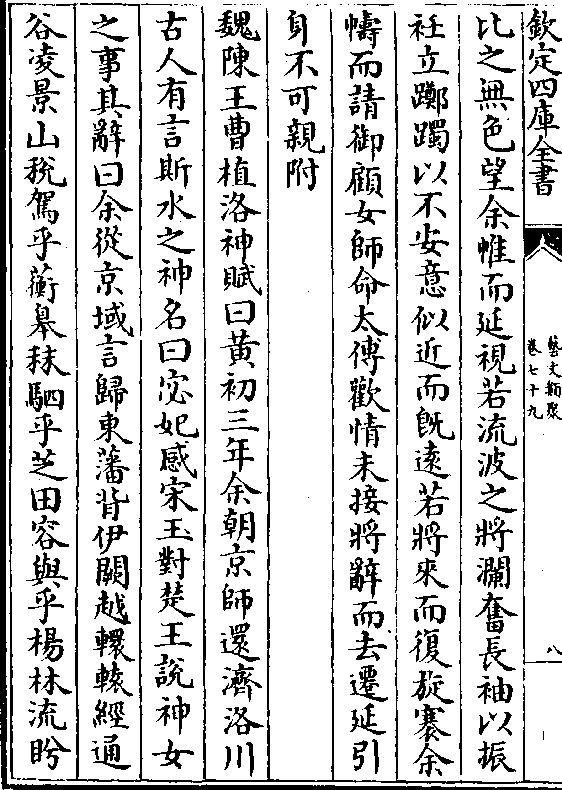 欽定四庫全書
藝文類聚
卷七十九
八
比之無色望余帷而延視若流波之將瀾奮長袖以振
袵立躑躅以不安意似近而旣逺若將來而復旋褰余
幬而請御顧女師命太傅歡情未接將辭而去遷延引
身不可親附
魏陳王曹植洛神賦曰黄初三年余朝京師還濟洛川
古人有言斯水之神名曰宓妃感宋玉對楚王說神女
之事其辭曰余從京域言歸東藩背伊闕越轘轅經通
谷凌景山稅駕乎蘅臯秣駟乎芝田容與乎楊林流眄